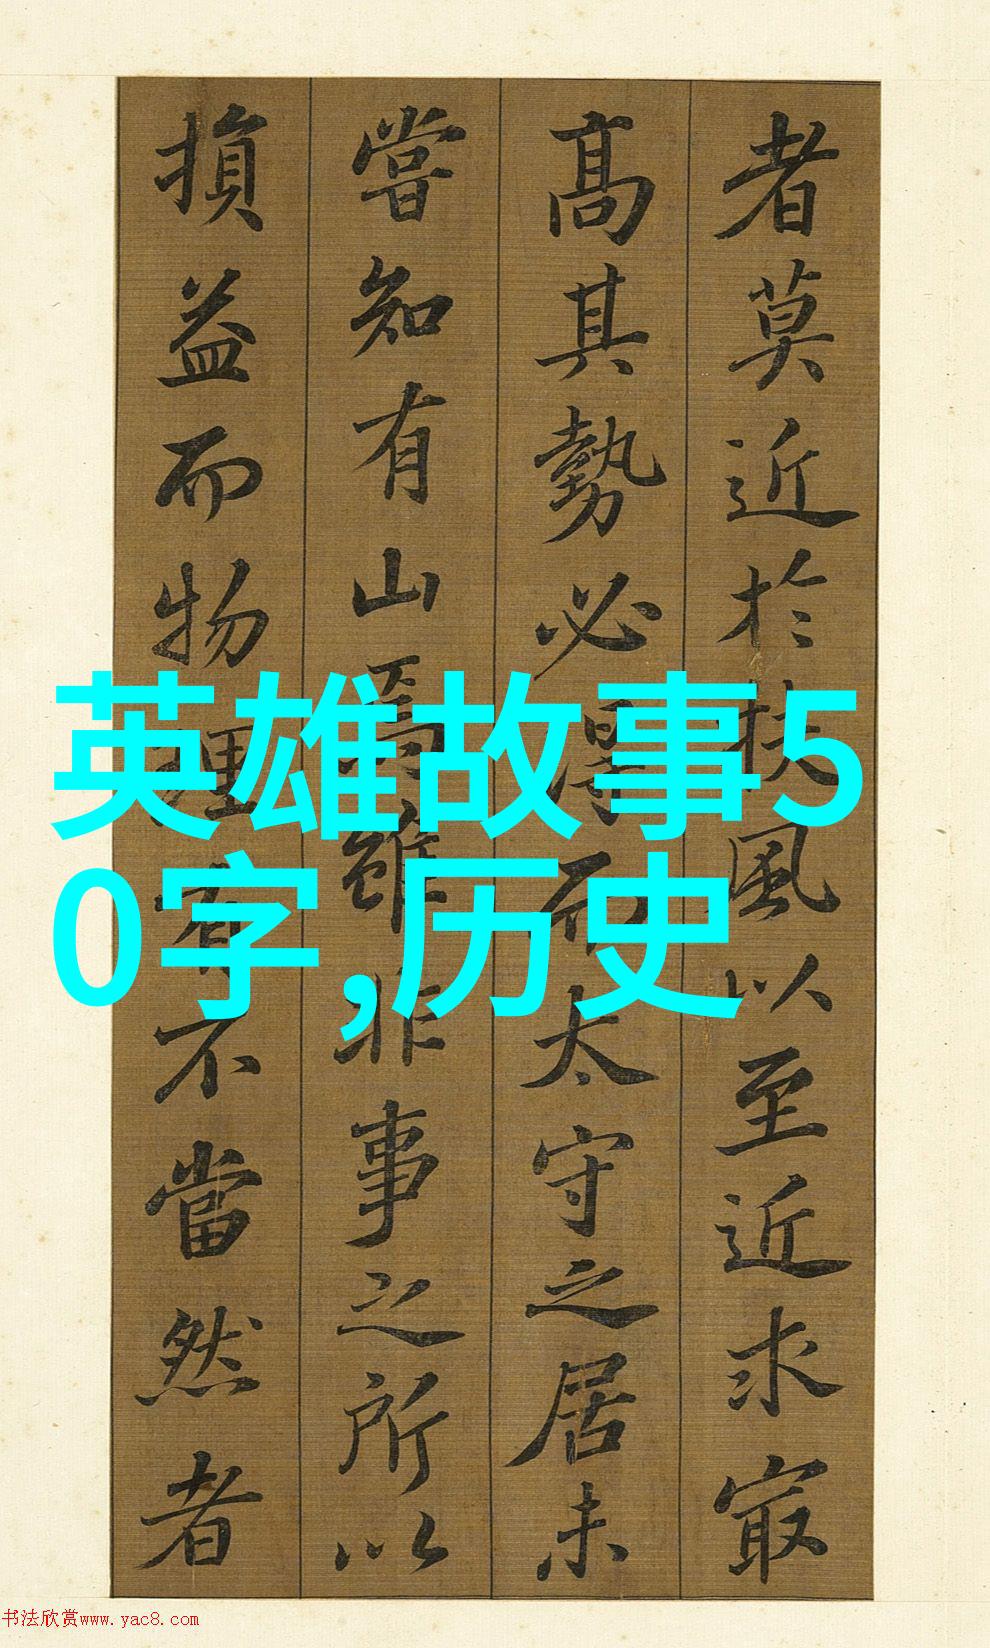 者莫近於扶風以至近求最
高其勢必得而太守之居未
嘗知有山焉雖非事之所以
損益而物理有不當然者
英雄故事5
0字,历史
书法欣赏www.yac8.com